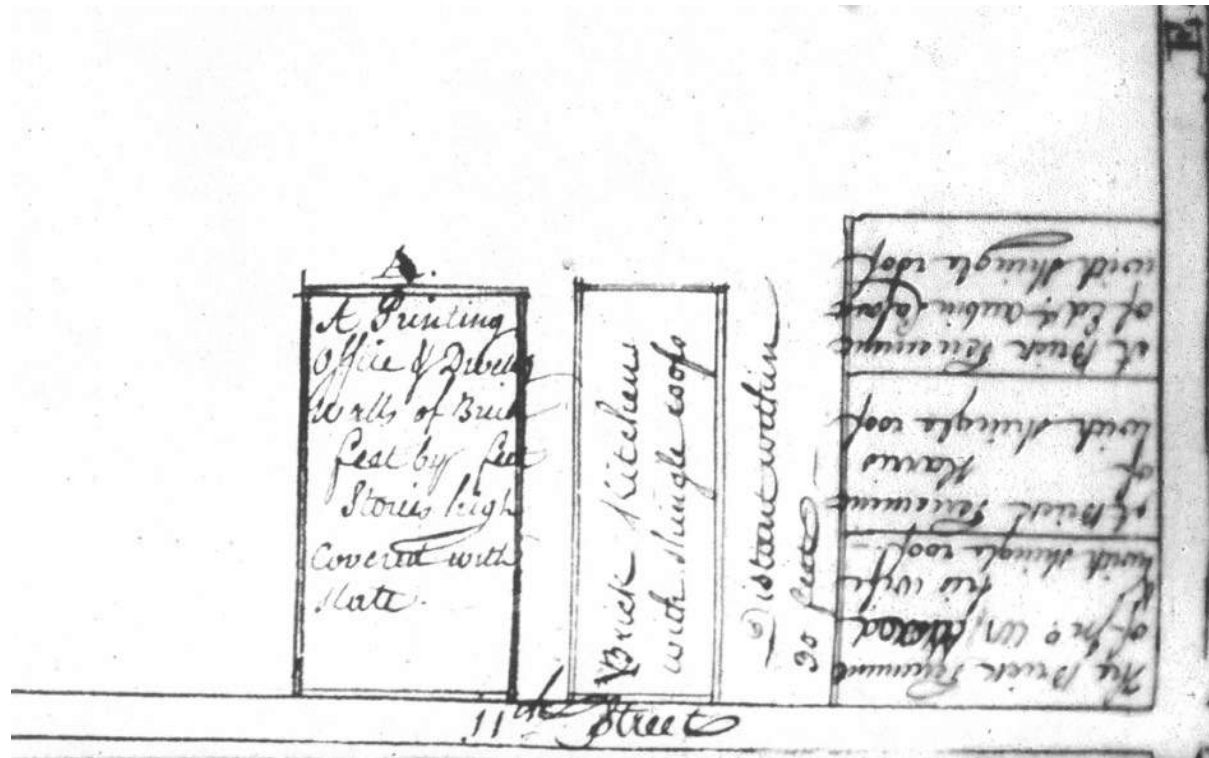 A.
A Printing
Office & Dwelling
Walls of Brick
feet by feet
Stories high
Covered with
slate.
Brick Kitchens
with shingle roofs
Distant within
30 feet
A Brick Tenement
of Ed. St. Aubin
with shingle roof
A Brick Tenement
of Harris
with shingle roof
The Brick Tenement
of Jno. W.
his wife
with shingle roof
11th Street
E